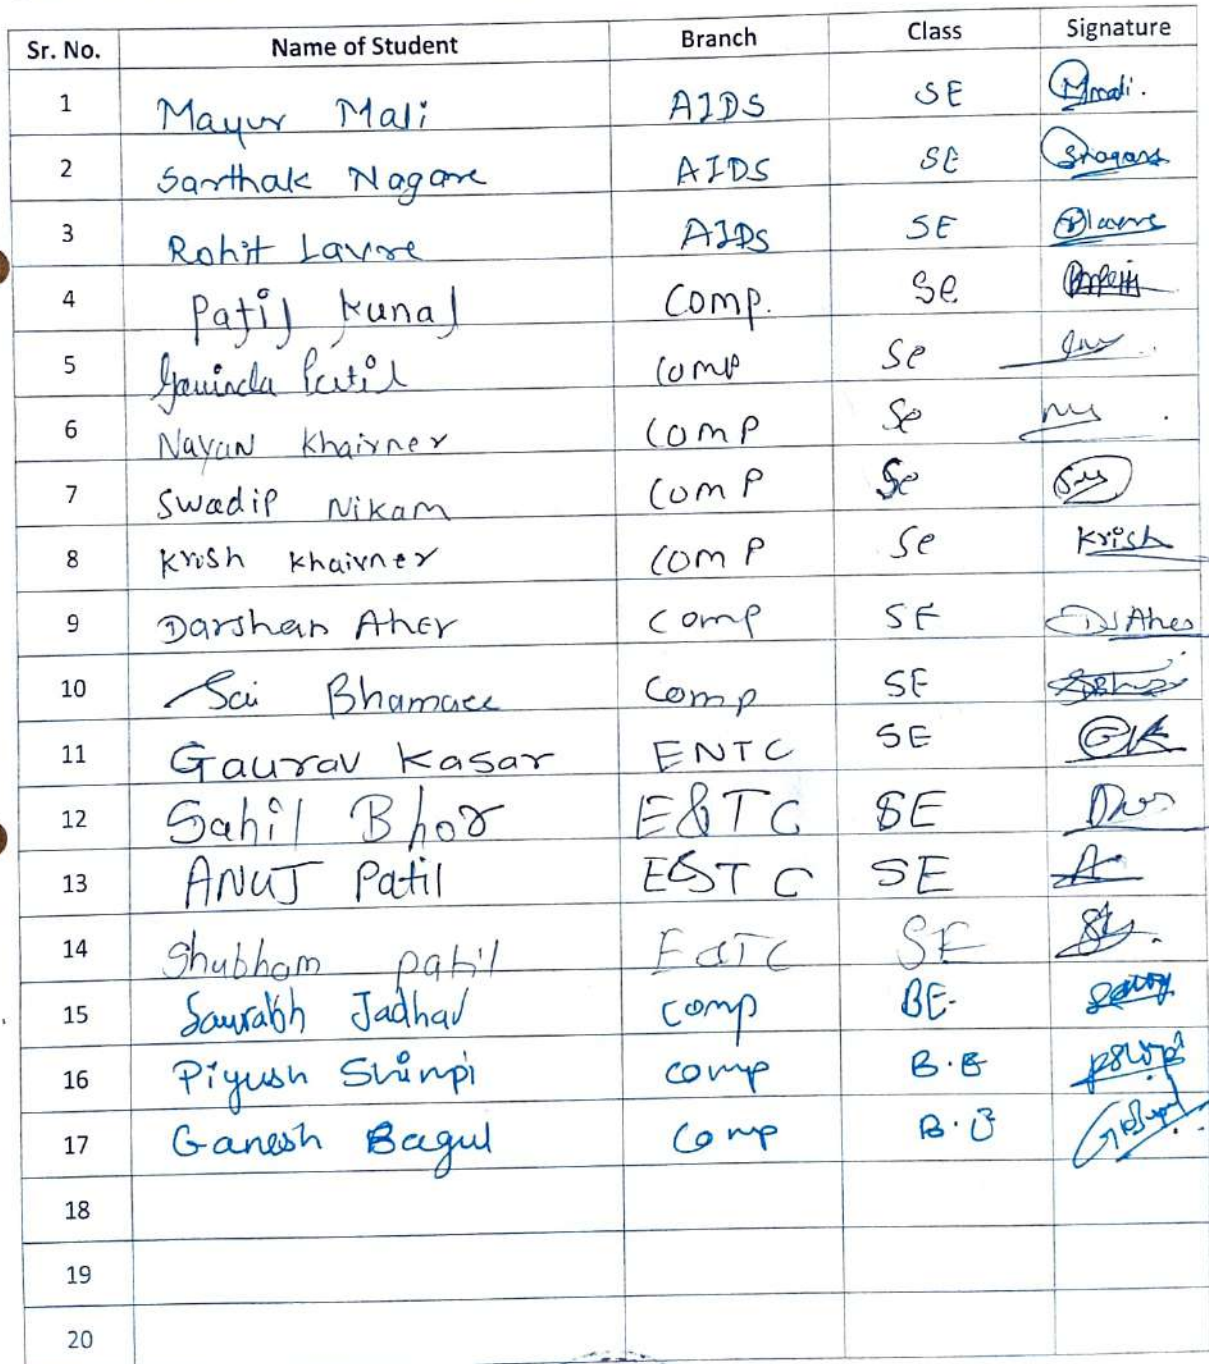 Sr. No. Name of Student Branch Class Signature
1 Mayur Mali AIDS SE Mmali.
2 Sarthak Nagare AIDS SE Snagare
3 Rohit Lavre AIDS SE
4 Patil Kunal Comp. Se
5 Govinda Patil Comp Se
6 Nayan Khairner Comp Se
7 Swadip Nikam Comp Se
8 Krish Khairner Comp Se Krish
9 Darshan Aher Comp SE DJAher
10 Sai Bhamare Comp SE
11 Gaurav Kasar ENTC SE GK
12 Sahil Bhor E&TC SE
13 ANUJ Patil E&TC SE A
14 Shubham patil E&TC SE
15 Saurabh Jadhav comp BE-
16 Piyush Shimpi comp B.E
17 Ganesh Bagul Comp B.E
18
19
20